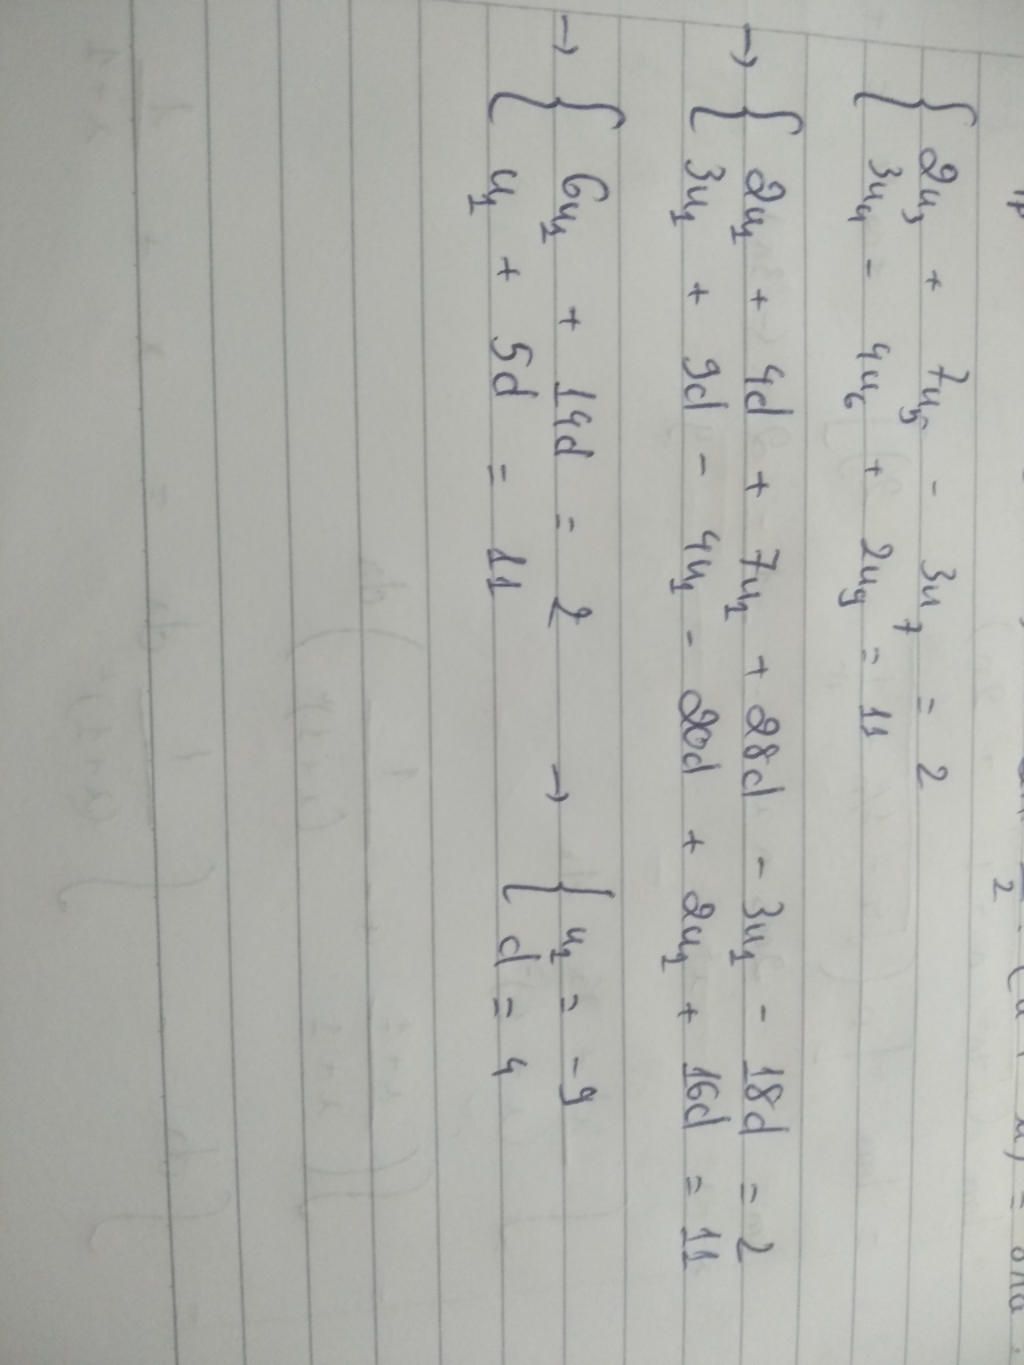 { 2u₃ + 7u₅ - 3u₇ = 2
3u₄ - 4u₆ + 2u₉ = 11
→ { 2u₁ + 4d + 7u₁ + 28d - 3u₁ - 18d = 2
3u₁ + 9d - 4u₁ - 20d + 2u₁ + 16d = 11
→ { 6u₁ + 14d = 2 → { u₁ = -9
u₁ + 5d = 11 d = 4